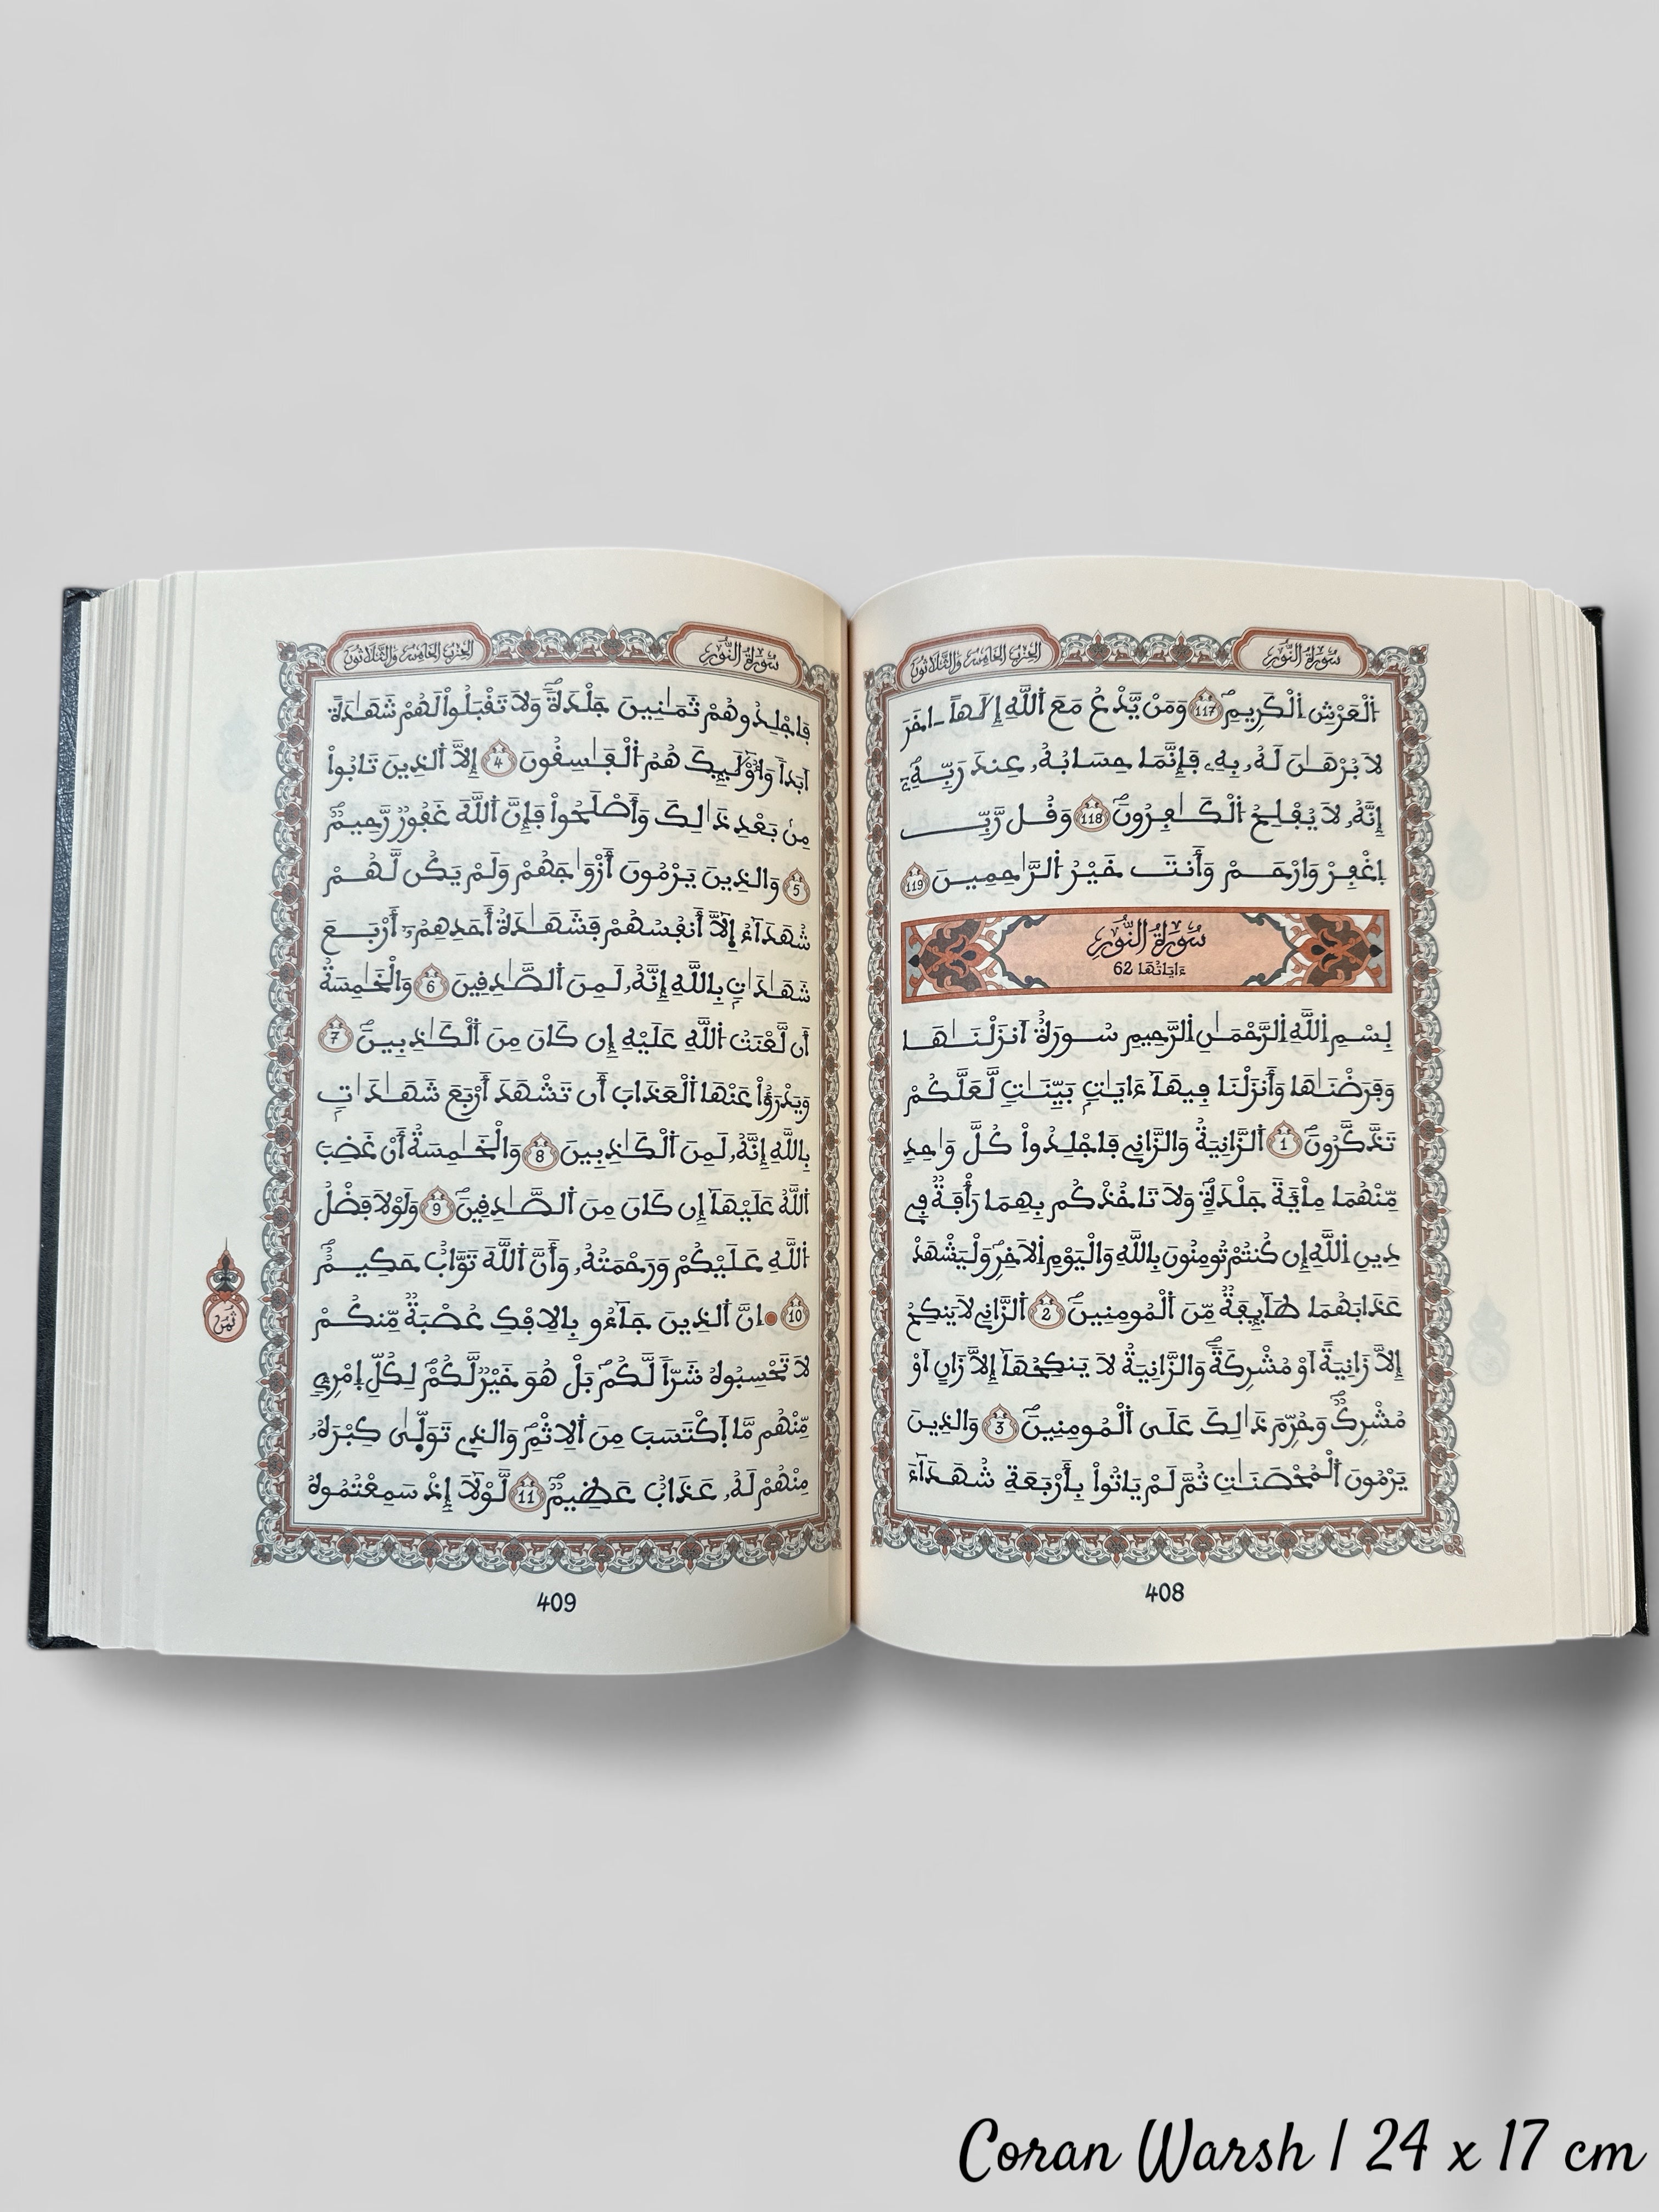 سُورَةُ النُّورِ
الحزب الخامس والثلاثون
اَ۬لْعَرْشِ اِ۬لْكَرِيمِۖ 117 وَمَنْ يَّدْعُ مَعَ اَ۬للَّهِ إِلَٰهاً ـ اخَرَ
لَا بُرْهَٰنَ لَهُۥ بِهِۦ فَإِنَّمَا حِسَابُهُۥ عِندَ رَبِّهِۦٓۖ
إِنَّهُۥ لَا يُفْلِحُ اُ۬لْكَٰفِرُونَۖ 118 وَقُل رَّبِّ
اِ۪غْفِرْ وَارْحَمْ وَأَنتَ خَيْرُ اُ۬لرَّٰحِمِينَ 119
سُورَةُ النُّورِ
ءَايَاتُهَا 62
بِسْمِ اِ۬للَّهِ اِ۬لرَّحْمَٰنِ اِ۬لرَّحِيمِ سُورَةٌ اَنزَلْنَٰهَا
وَفَرَضْنَٰهَا وَأَنزَلْنَا فِيهَآ ءَايَٰتِۢ بَيِّنَٰتٖ لَّعَلَّكُمْ
تَذَّكَّرُونَۖ 1 اَ۬لزَّانِيَةُ وَالزَّانِے فَاجْلِدُواْ كُلَّ وَٰحِدٖ
مِّنْهُمَا مِاْئَةَ جَلْدَةٖۖ وَلَا تَاخُذْكُم بِهِمَا رَأْفَةٞ فِے
دِينِ اِ۬للَّهِ إِن كُنتُمْ تُومِنُونَ بِاللَّهِ وَالْيَوْمِ اِ۬لَاخِرِۖ وَلْيَشْهَدْ
عَذَابَهُمَا طَآئِفَةٞ مِّنَ اَ۬لْمُومِنِينَۖ 2 اَ۬لزَّانِے لَا يَنكِحُ
إِلَّا زَانِيَةً اَوْ مُشْرِكَةٗۖ وَالزَّانِيَةُ لَا يَنكِحُهَآ إِلَّا زَانٍ اَوْ
مُشْرِكٞۖ وَحُرِّمَ ذَٰلِكَ عَلَى اَ۬لْمُومِنِينَۖ 3 وَالذِينَ
يَرْمُونَ اَ۬لْمُحْصَنَٰتِ ثُمَّ لَمْ يَاتُواْ بِأَرْبَعَةِ شُهَدَآءَ
408
سُورَةُ النُّورِ
الحزب الخامس والثلاثون
فَاجْلِدُوهُمْ ثَمَٰنِينَ جَلْدَةٗۖ وَلَا تَقْبَلُواْ لَهُمْ شَهَٰدَةً
اَبَداٗ وَأُوْلَٰٓئِكَ هُمُ اُ۬لْفَٰسِقُونَ 4 إِلَّا اَ۬لذِينَ تَابُواْ
مِنۢ بَعْدِ ذَٰلِكَ وَأَصْلَحُواْ فَإِنَّ اَ۬للَّهَ غَفُورٞ رَّحِيمٞۖ
5 وَالذِينَ يَرْمُونَ أَزْوَٰجَهُمْ وَلَمْ يَكُن لَّهُمْ
شُهَدَآءُ اِ۪لَّآ أَنفُسُهُمْ فَشَهَٰدَةُ أَحَدِهِمُۥٓ أَرْبَعَ
شَهَٰدَٰتِۢ بِاللَّهِ إِنَّهُۥ لَمِنَ اَ۬لصَّٰدِقِينَ 6 وَالْخَٰمِسَةُ
أَن لَّعْنَتُ اُ۬للَّهِ عَلَيْهِ إِن كَانَ مِنَ اَ۬لْكَٰذِبِينَۖ 7
وَيَدْرَؤُاْ عَنْهَا اَ۬لْعَذَابَ أَن تَشْهَدَ أَرْبَعَ شَهَٰدَٰتِۢ
بِاللَّهِ إِنَّهُۥ لَمِنَ اَ۬لْكَٰذِبِينَ 8 وَالْخَٰمِسَةُ أَنْ غَضِبَ
اَ۬للَّهُ عَلَيْهَآ إِن كَانَ مِنَ اَ۬لصَّٰدِقِينَۖ 9 وَلَوْلَا فَضْلُ
اُ۬للَّهِ عَلَيْكُمْ وَرَحْمَتُهُۥ وَأَنَّ اَ۬للَّهَ تَوَّابٌ حَكِيمٌۖ
10 اِنَّ اَ۬لذِينَ جَآءُو بِالِافْكِ عُصْبَةٞ مِّنكُمْ
لَا تَحْسِبُوهُ شَرّاٗ لَّكُمۖ بَلْ هُوَ خَيْرٞ لَّكُمْۖ لِكُلِّ اِ۪مْرِےٕٖ
مِّنْهُم مَّا اَ۪كْتَسَبَ مِنَ اَ۬لِاثْمِۖ وَالذِے تَوَلّ۪ىٰ كِبْرَهُۥ
مِنْهُمْ لَهُۥ عَذَابٌ عَظِيمٞۖ 11 لَّوْلَآ إِذْ سَمِعْتُمُوهُ
ثمن
409
Coran Warsh | 24 x 17 cm